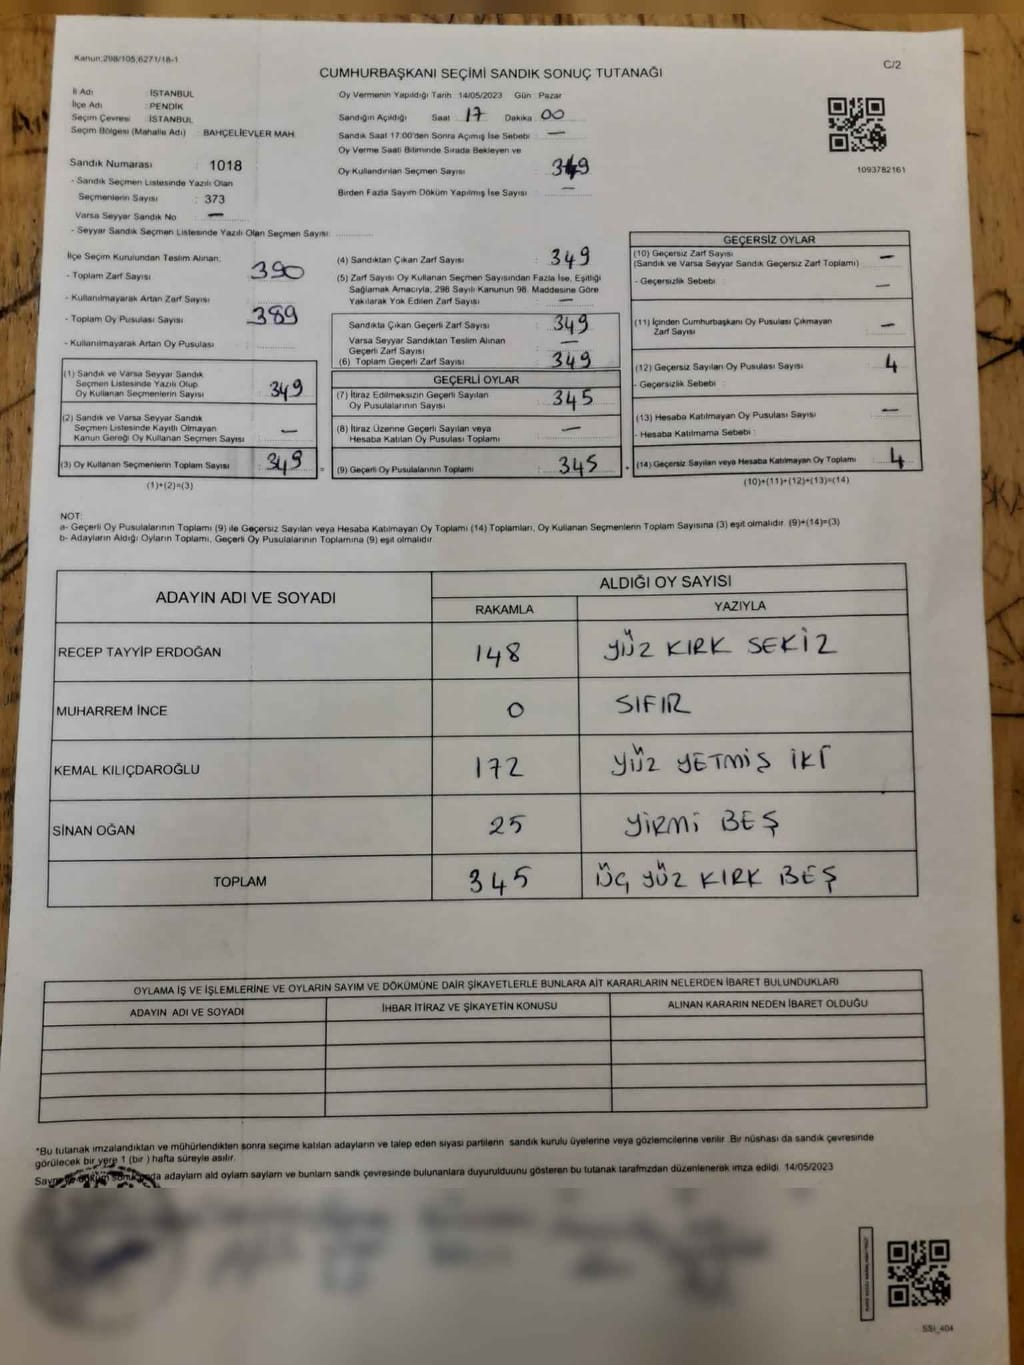 Kanun:298/105,6271/18-1
C/2
CUMHURBAŞKANI SEÇİMİ SANDIK SONUÇ TUTANAĞI
İl Adı : İSTANBUL
İlçe Adı : PENDİK
Seçim Çevresi : İSTANBUL
Seçim Bölgesi (Mahalle Adı) : BAHÇELİEVLER MAH.
Sandık Numarası : 1018
- Sandık Seçmen Listesinde Yazılı Olan
Seçmenlerin Sayısı : 373
Varsa Seyyar Sandık No : —
- Seyyar Sandık Seçmen Listesinde Yazılı Olan Seçmen Sayısı:
Oy Vermenin Yapıldığı Tarih : 14/05/2023 Gün : Pazar
Sandığın Açıldığı Saat : 17 Dakika : 00
Sandık Saat 17:00'den Sonra Açımış İse Sebebi : —
Oy Verme Saati Bitiminde Sırada Bekleyen ve
Oy Kullandırılan Seçmen Sayısı : 349
Birden Fazla Sayım Döküm Yapılmış İse Sayısı : —
1093782161
İlçe Seçim Kurulundan Teslim Alınan;
- Toplam Zarf Sayısı : 390
- Kullanılmayarak Artan Zarf Sayısı :
- Toplam Oy Pusulası Sayısı : 389
- Kullanılmayarak Artan Oy Pusulası :
(1) Sandık ve Varsa Seyyar Sandık
Seçmen Listesinde Yazılı Olup
Oy Kullanan Seçmenlerin Sayısı : 349
(2) Sandık ve Varsa Seyyar Sandık
Seçmen Listesinde Kayıtlı Olmayan
Kanun Gereği Oy Kullanan Seçmen Sayısı : —
(3) Oy Kullanan Seçmenlerin Toplam Sayısı : 349 =
(1)+(2)=(3)
(4) Sandıktan Çıkan Zarf Sayısı : 349
(5) Zarf Sayısı Oy Kullanan Seçmen Sayısından Fazla İse, Eşitliği
Sağlamak Amacıyla, 298 Sayılı Kanunun 98. Maddesine Göre
Yakılarak Yok Edilen Zarf Sayısı : —
Sandıkta Çıkan Geçerli Zarf Sayısı : 349
Varsa Seyyar Sandıktan Teslim Alınan
Geçerli Zarf Sayısı : —
(6) Toplam Geçerli Zarf Sayısı : 349
GEÇERLİ OYLAR
(7) İtiraz Edilmeksizin Geçerli Sayılan
Oy Pusulalarının Sayısı : 345
(8) İtiraz Üzerine Geçerli Sayılan veya
Hesaba Katılan Oy Pusulası Toplamı : —
(9) Geçerli Oy Pusulalarının Toplamı : 345 +
GEÇERSİZ OYLAR
(10) Geçersiz Zarf Sayısı
(Sandık ve Varsa Seyyar Sandık Geçersiz Zarf Toplamı) : —
- Geçersizlik Sebebi : —
(11) İçinden Cumhurbaşkanı Oy Pusulası Çıkmayan
Zarf Sayısı : —
(12) Geçersiz Sayılan Oy Pusulası Sayısı : 4
- Geçersizlik Sebebi :
(13) Hesaba Katılmayan Oy Pusulası Sayısı : —
- Hesaba Katılmama Sebebi :
(14) Geçersiz Sayılan veya Hesaba Katılmayan Oy Toplamı : 4
(10)+(11)+(12)+(13)=(14)
NOT:
a- Geçerli Oy Pusulalarının Toplamı (9) ile Geçersiz Sayılan veya Hesaba Katılmayan Oy Toplamı (14) Toplamları, Oy Kullanan Seçmenlerin Toplam Sayısına (3) eşit olmalıdır. (9)+(14)=(3)
b- Adayların Aldığı Oyların Toplamı, Geçerli Oy Pusulalarının Toplamına (9) eşit olmalıdır.
ADAYIN ADI VE SOYADI ALDIĞI OY SAYISI
RAKAMLA YAZIYLA
RECEP TAYYİP ERDOĞAN 148 YÜZ KIRK SEKİZ
MUHARREM İNCE 0 SIFIR
KEMAL KILIÇDAROĞLU 172 YÜZ YETMİŞ İKİ
SİNAN OĞAN 25 YİRMİ BEŞ
TOPLAM 345 ÜÇ YÜZ KIRK BEŞ
OYLAMA İŞ VE İŞLEMLERİNE VE OYLARIN SAYIM VE DÖKÜMÜNE DAİR ŞİKAYETLERLE BUNLARA AİT KARARLARIN NELERDEN İBARET BULUNDUKLARI
ADAYIN ADI VE SOYADI İHBAR İTİRAZ VE ŞİKAYETİN KONUSU ALINAN KARARIN NEDEN İBARET OLDUĞU
*Bu tutanak imzalandıktan ve mühürlendikten sonra seçime katılan adayların ve talep eden siyasi partilerin sandık kurulu üyelerine veya gözlemcilerine verilir. Bir nüshası da sandık çevresinde
görülecek bir yere 1 (bir ) hafta süreyle asılır.
Sayım ve döküm sonucunda adayların ald oyların sayların ve bunların sandk çevresinde bulunanlara duyurulduunu gösteren bu tutanak tarafmzdan düzenlenerek imza edildi. 14/05/2023
SSI_404